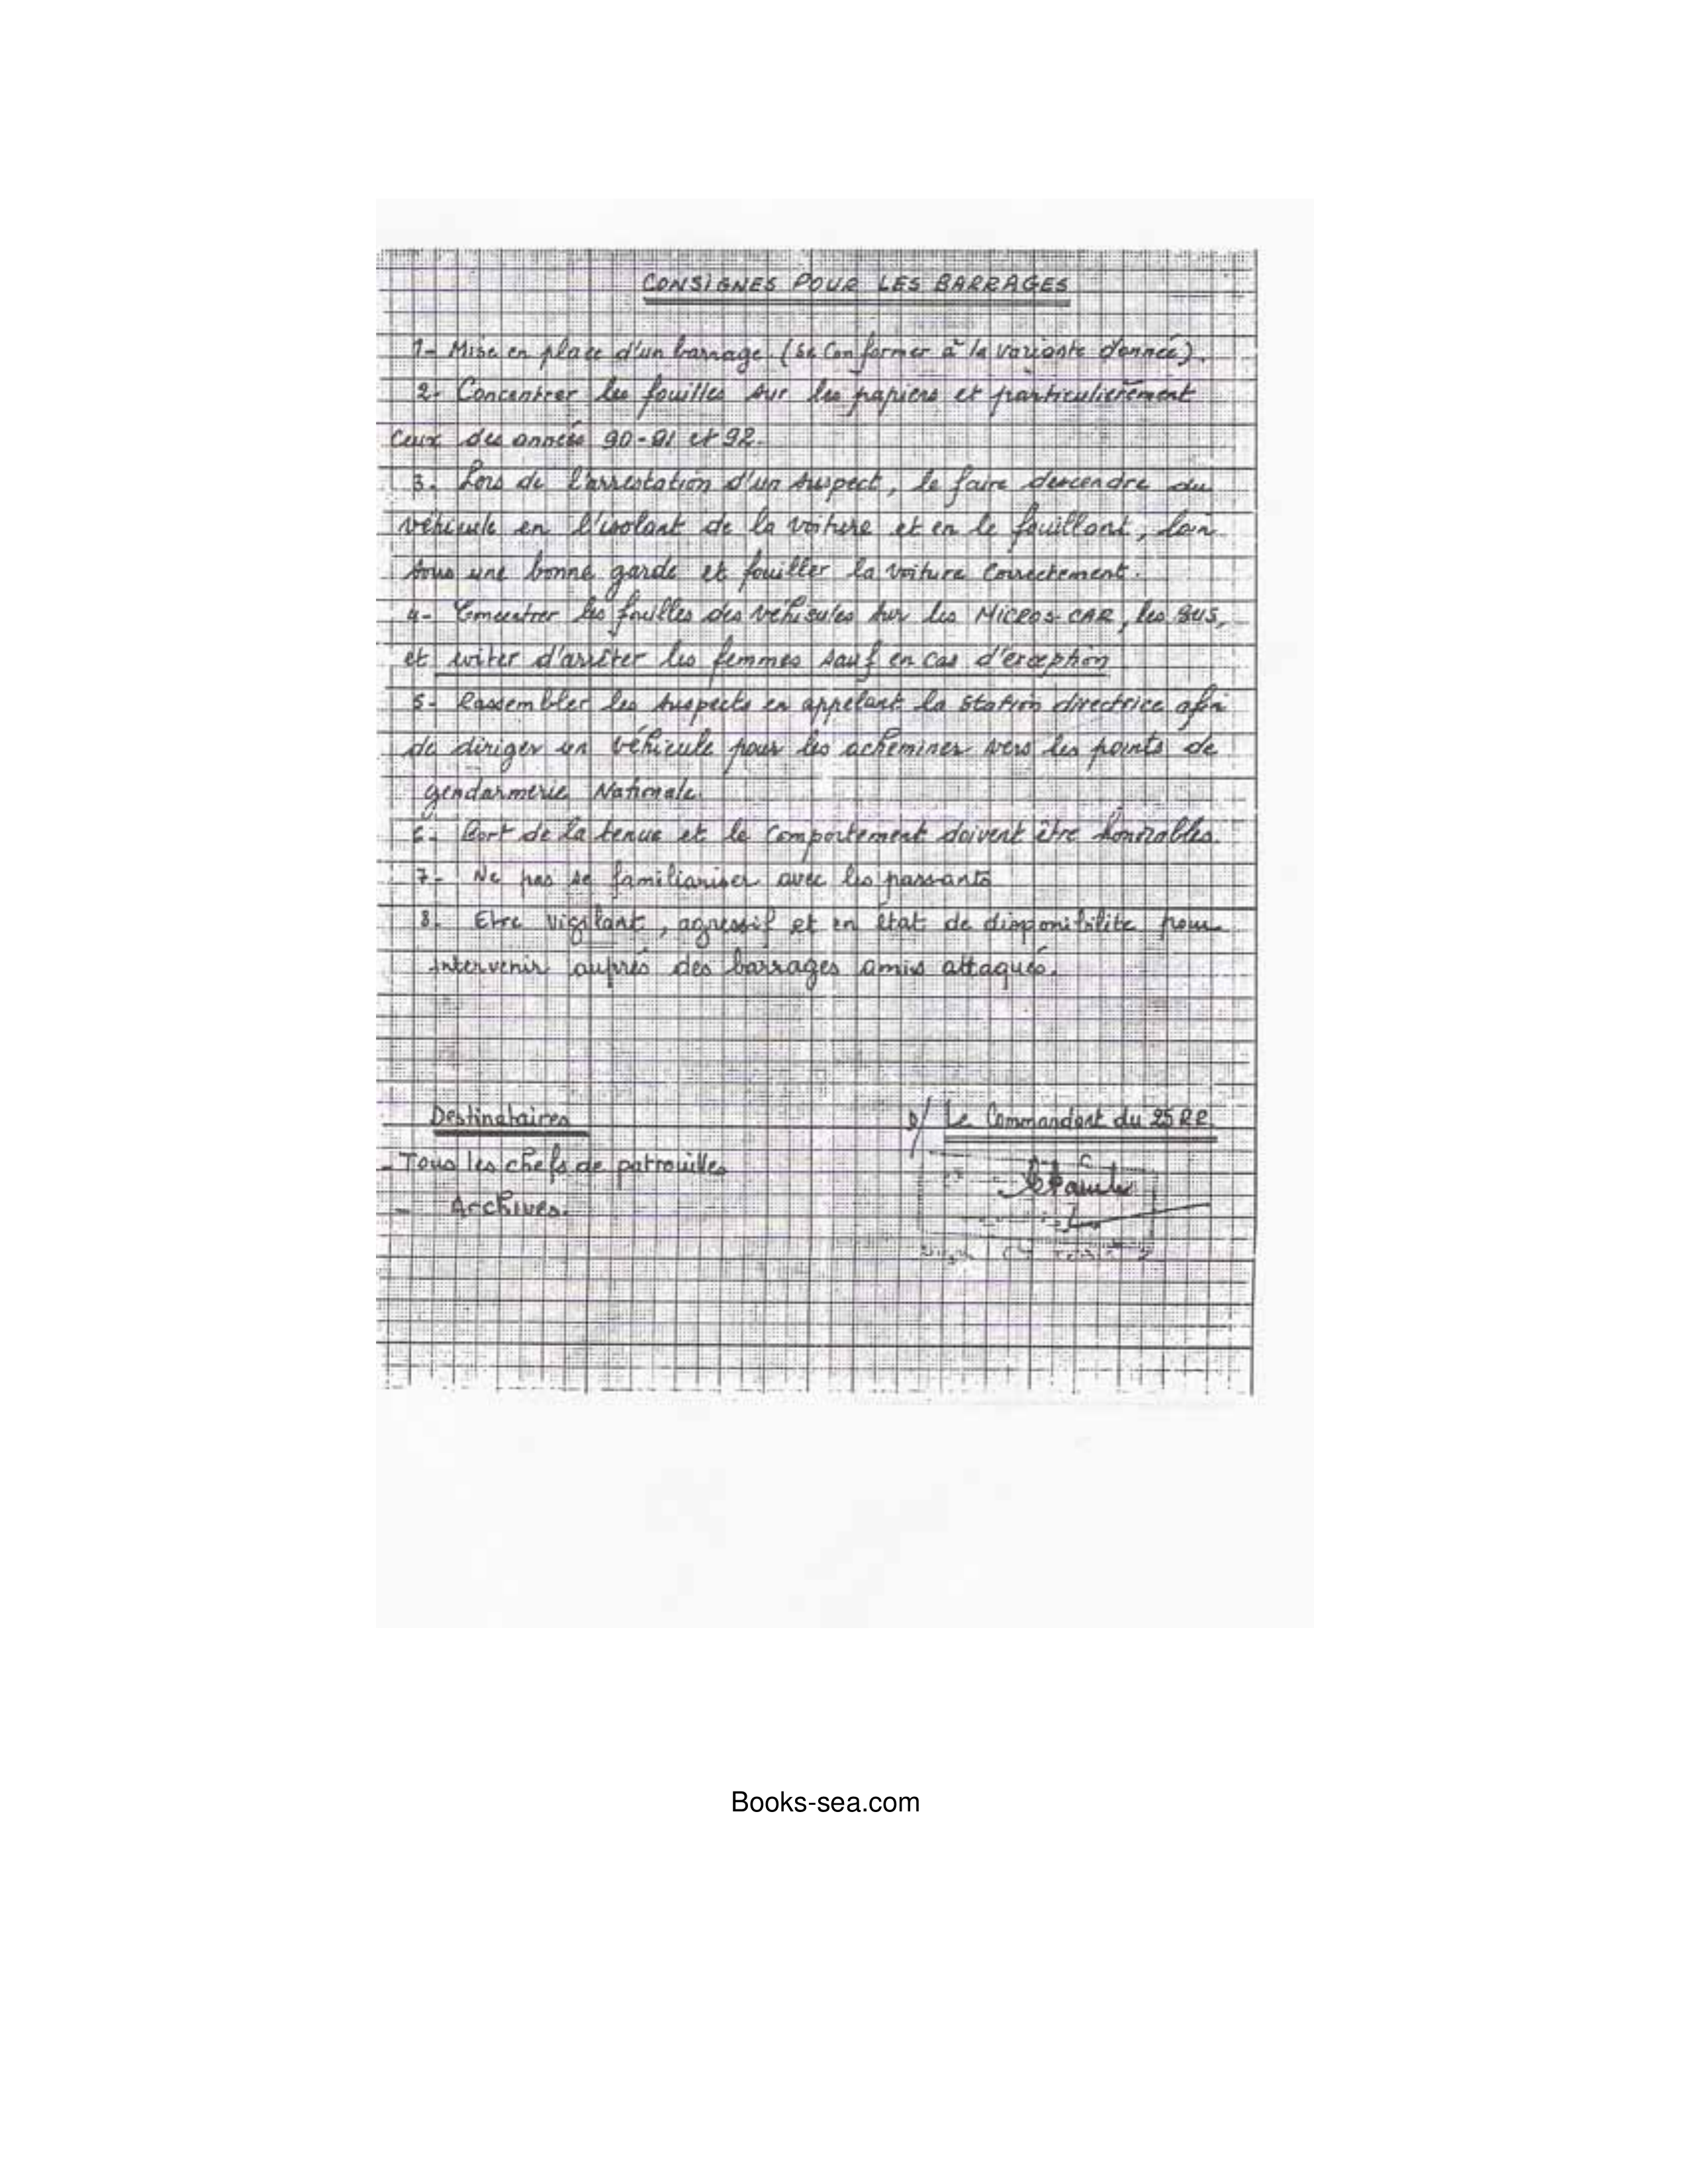 CONSIGNES POUR LES BARRAGES
1- Mise en place d'un barrage. (Se Conformer à la variante donnée).
2- Concentrer les fouilles sur les papiers et particulièrement
Ceux des années 90-91 et 92.
3- Lors de l'arrestation d'un suspect, le faire descendre du
véhicule en l'isolant de la voiture et en le fouillant, loin
sous une bonne garde et fouiller la voiture Correctement.
4- Concentrer les fouilles des véhicules sur les MICROS-CAR, les BUS,
et éviter d'arrêter les femmes sauf en cas d'exception
5- Rassembler les suspects en appelant la station directrice afin
de diriger un véhicule pour les acheminer vers les points de
gendarmerie Nationale.
6- Port de la tenue et le Comportement doivent être honorables.
7- Ne pas se familiariser avec les passants
8- Etre vigilant, agressif et en état de disponibilité pour
intervenir auprés des barrages amis attaqués.
Destinataires
P/ Le Commandant du 25 RR.
- Tous les chefs de patrouilles
- Archives.
Books-sea.com